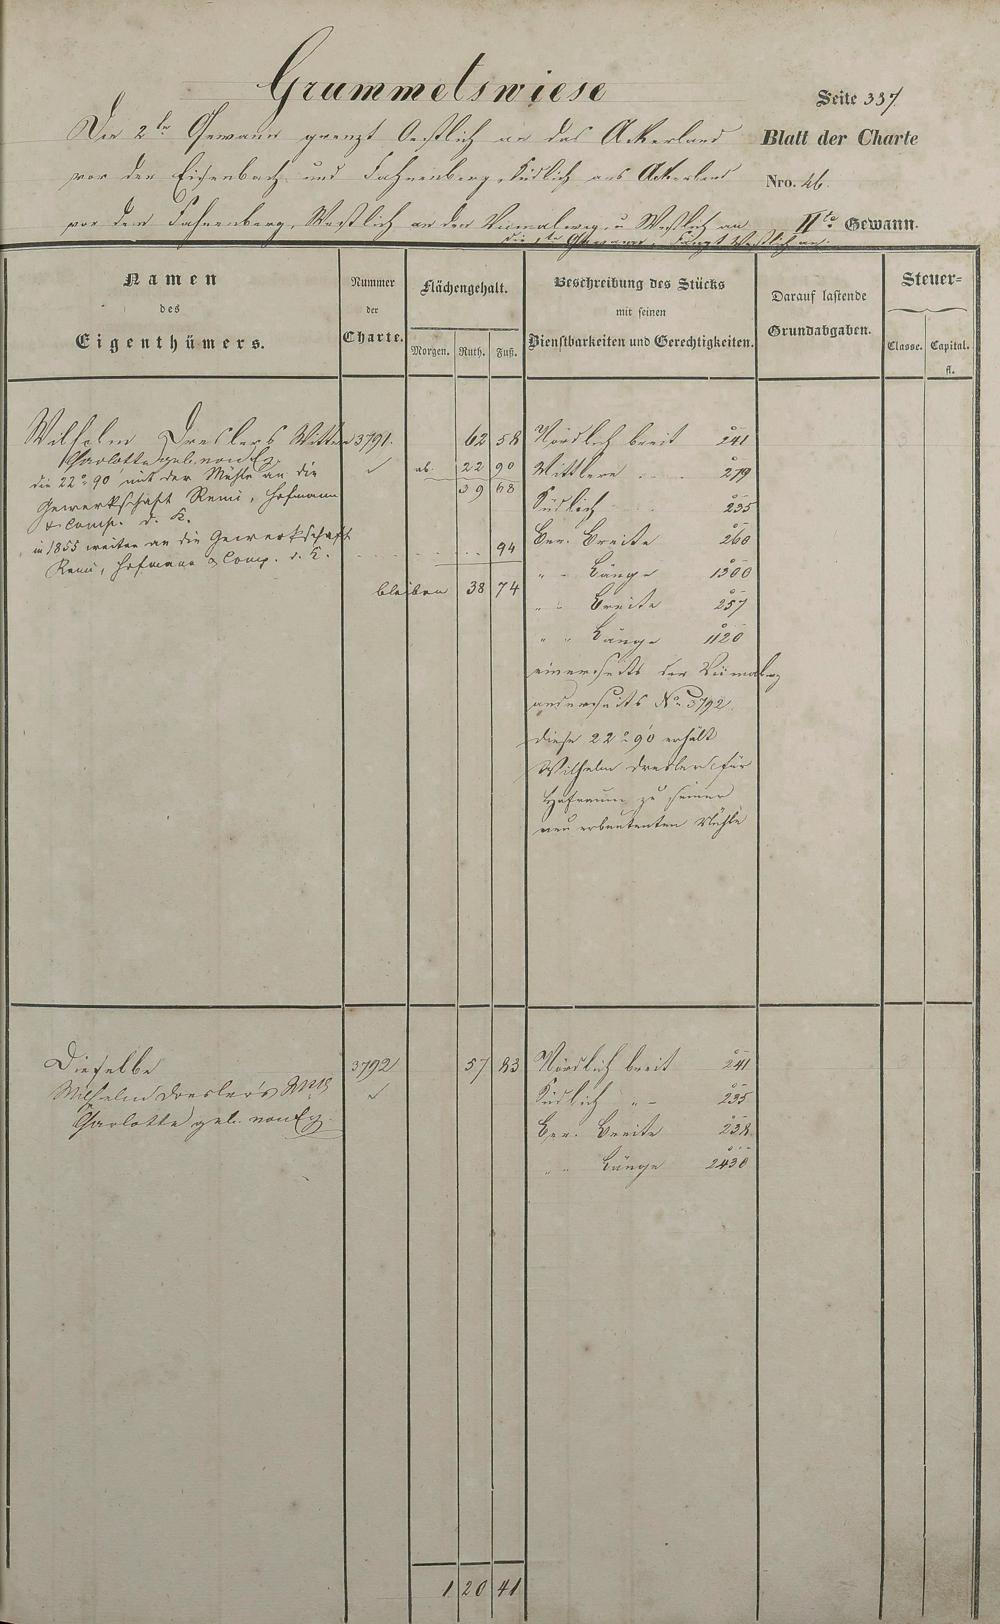 Grummetswiese
Seite 337
Die 2te Gewann grenzt Oestlich an das Ackerland
Blatt der Charte
vor der Eisenbach und Fahrenberg, Südlich ans Ackerland
Nro. 46.
vor dem Fahrenberg, Westlich an den u Westlich an
IIte Gewann.
die 1te Gewann, fängt Westlich an.
Namen
des
Eigenthümers.
Nummer
der
Charte.
Flächengehalt.
Morgen. Ruth. Fuß.
Beschreibung des Stücks
mit seinen
Dienstbarkeiten und Gerechtigkeiten.
Darauf lastende
Grundabgaben.
Steuer-
Classe. Capital.
fl.
Wilhelm Dreslers Wittwe 3791. 62 58 Nördlich breit 241
Charlotte geb.
die 22° 90 mit der Mühle an die ab 22 90 Mittlere 279
Gewerkschaft Remi, Hofmann 39 68 Südlich 235
& Comp. d. K.
in 1855 weiter an die Gewerkschaft 94 Ber. Breite 260
Remi, Hofmann & Comp. d. K.
" - Länge 1300
bleiben 38 74 " " Breite 257
" " Länge 1120
einerseits der
anderseits No 3792.
diese 22° 90 erhält
Wilhelm Dresler für
Hofraum zu seiner
neu erbauten Mühle
Dieselbe 3792 57 83 Nördlich breit 241
Wilhelm Dresler's
Südlich " - 235
Charlotte geb.
Ber. Breite 238
" " Länge 2430
1 20 41